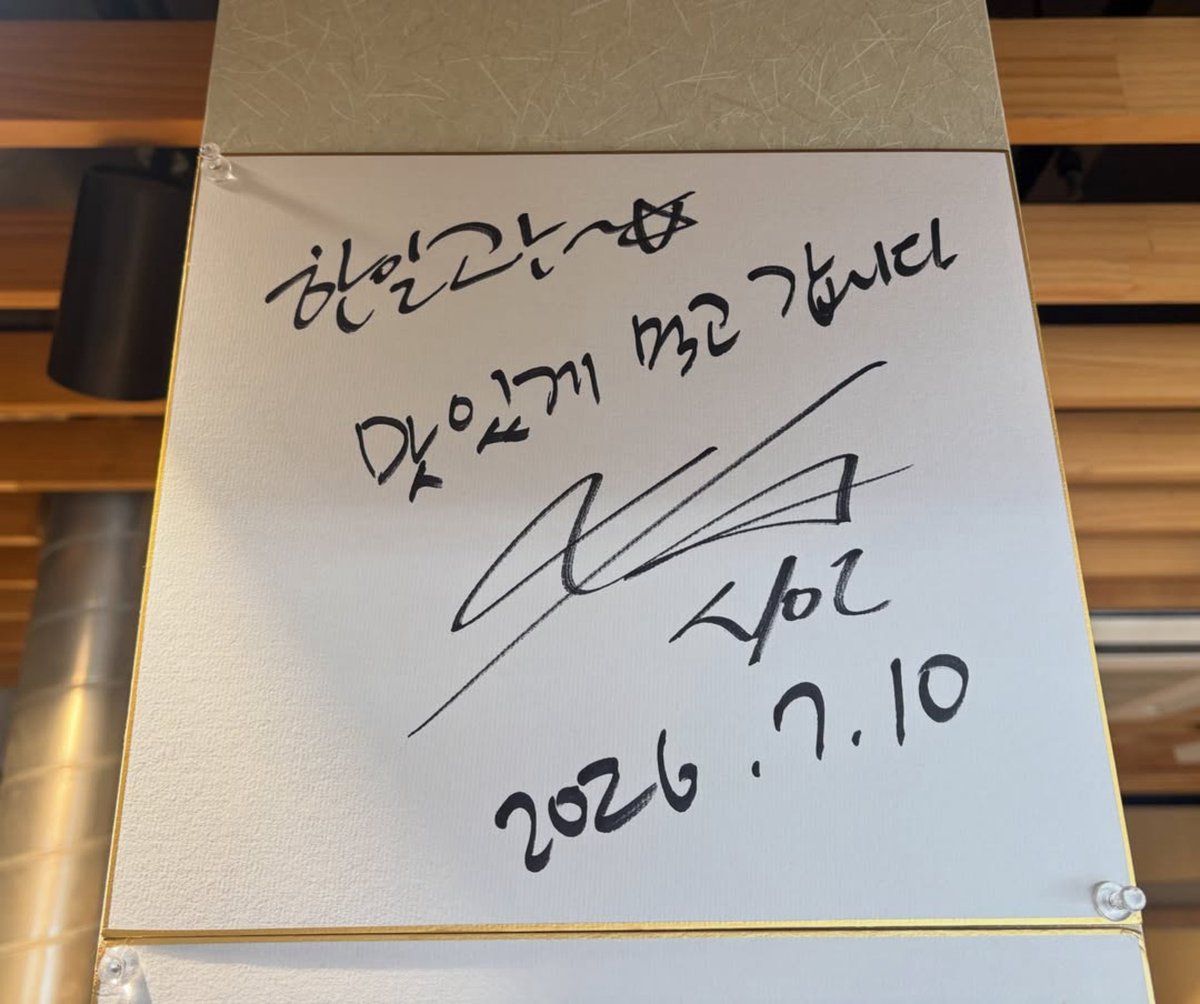 한일관~☆
맛있게 먹고 갑니다
2026.7.10